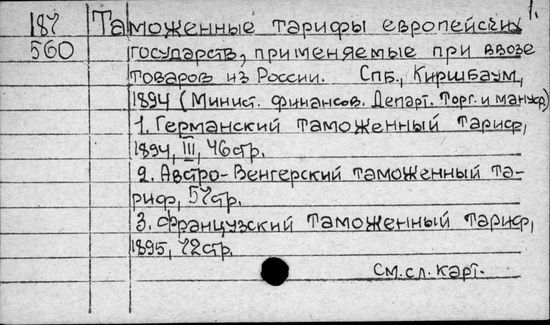 1.
187 Таможенные тарифы европейских
560 государств, применяемые при ввозе
товаров из России. СПБ, Киршбаум,
1894 (Минист. финансов. Департ. Торг. и мануф)
1. Германский таможенный тариф,
1894, III, 46 стр.
2. Австро-Венгерский таможенный та-
риф, 57 стр.
3. Французский таможенный тариф,
1895, 72 стр.
См. сл. карт.